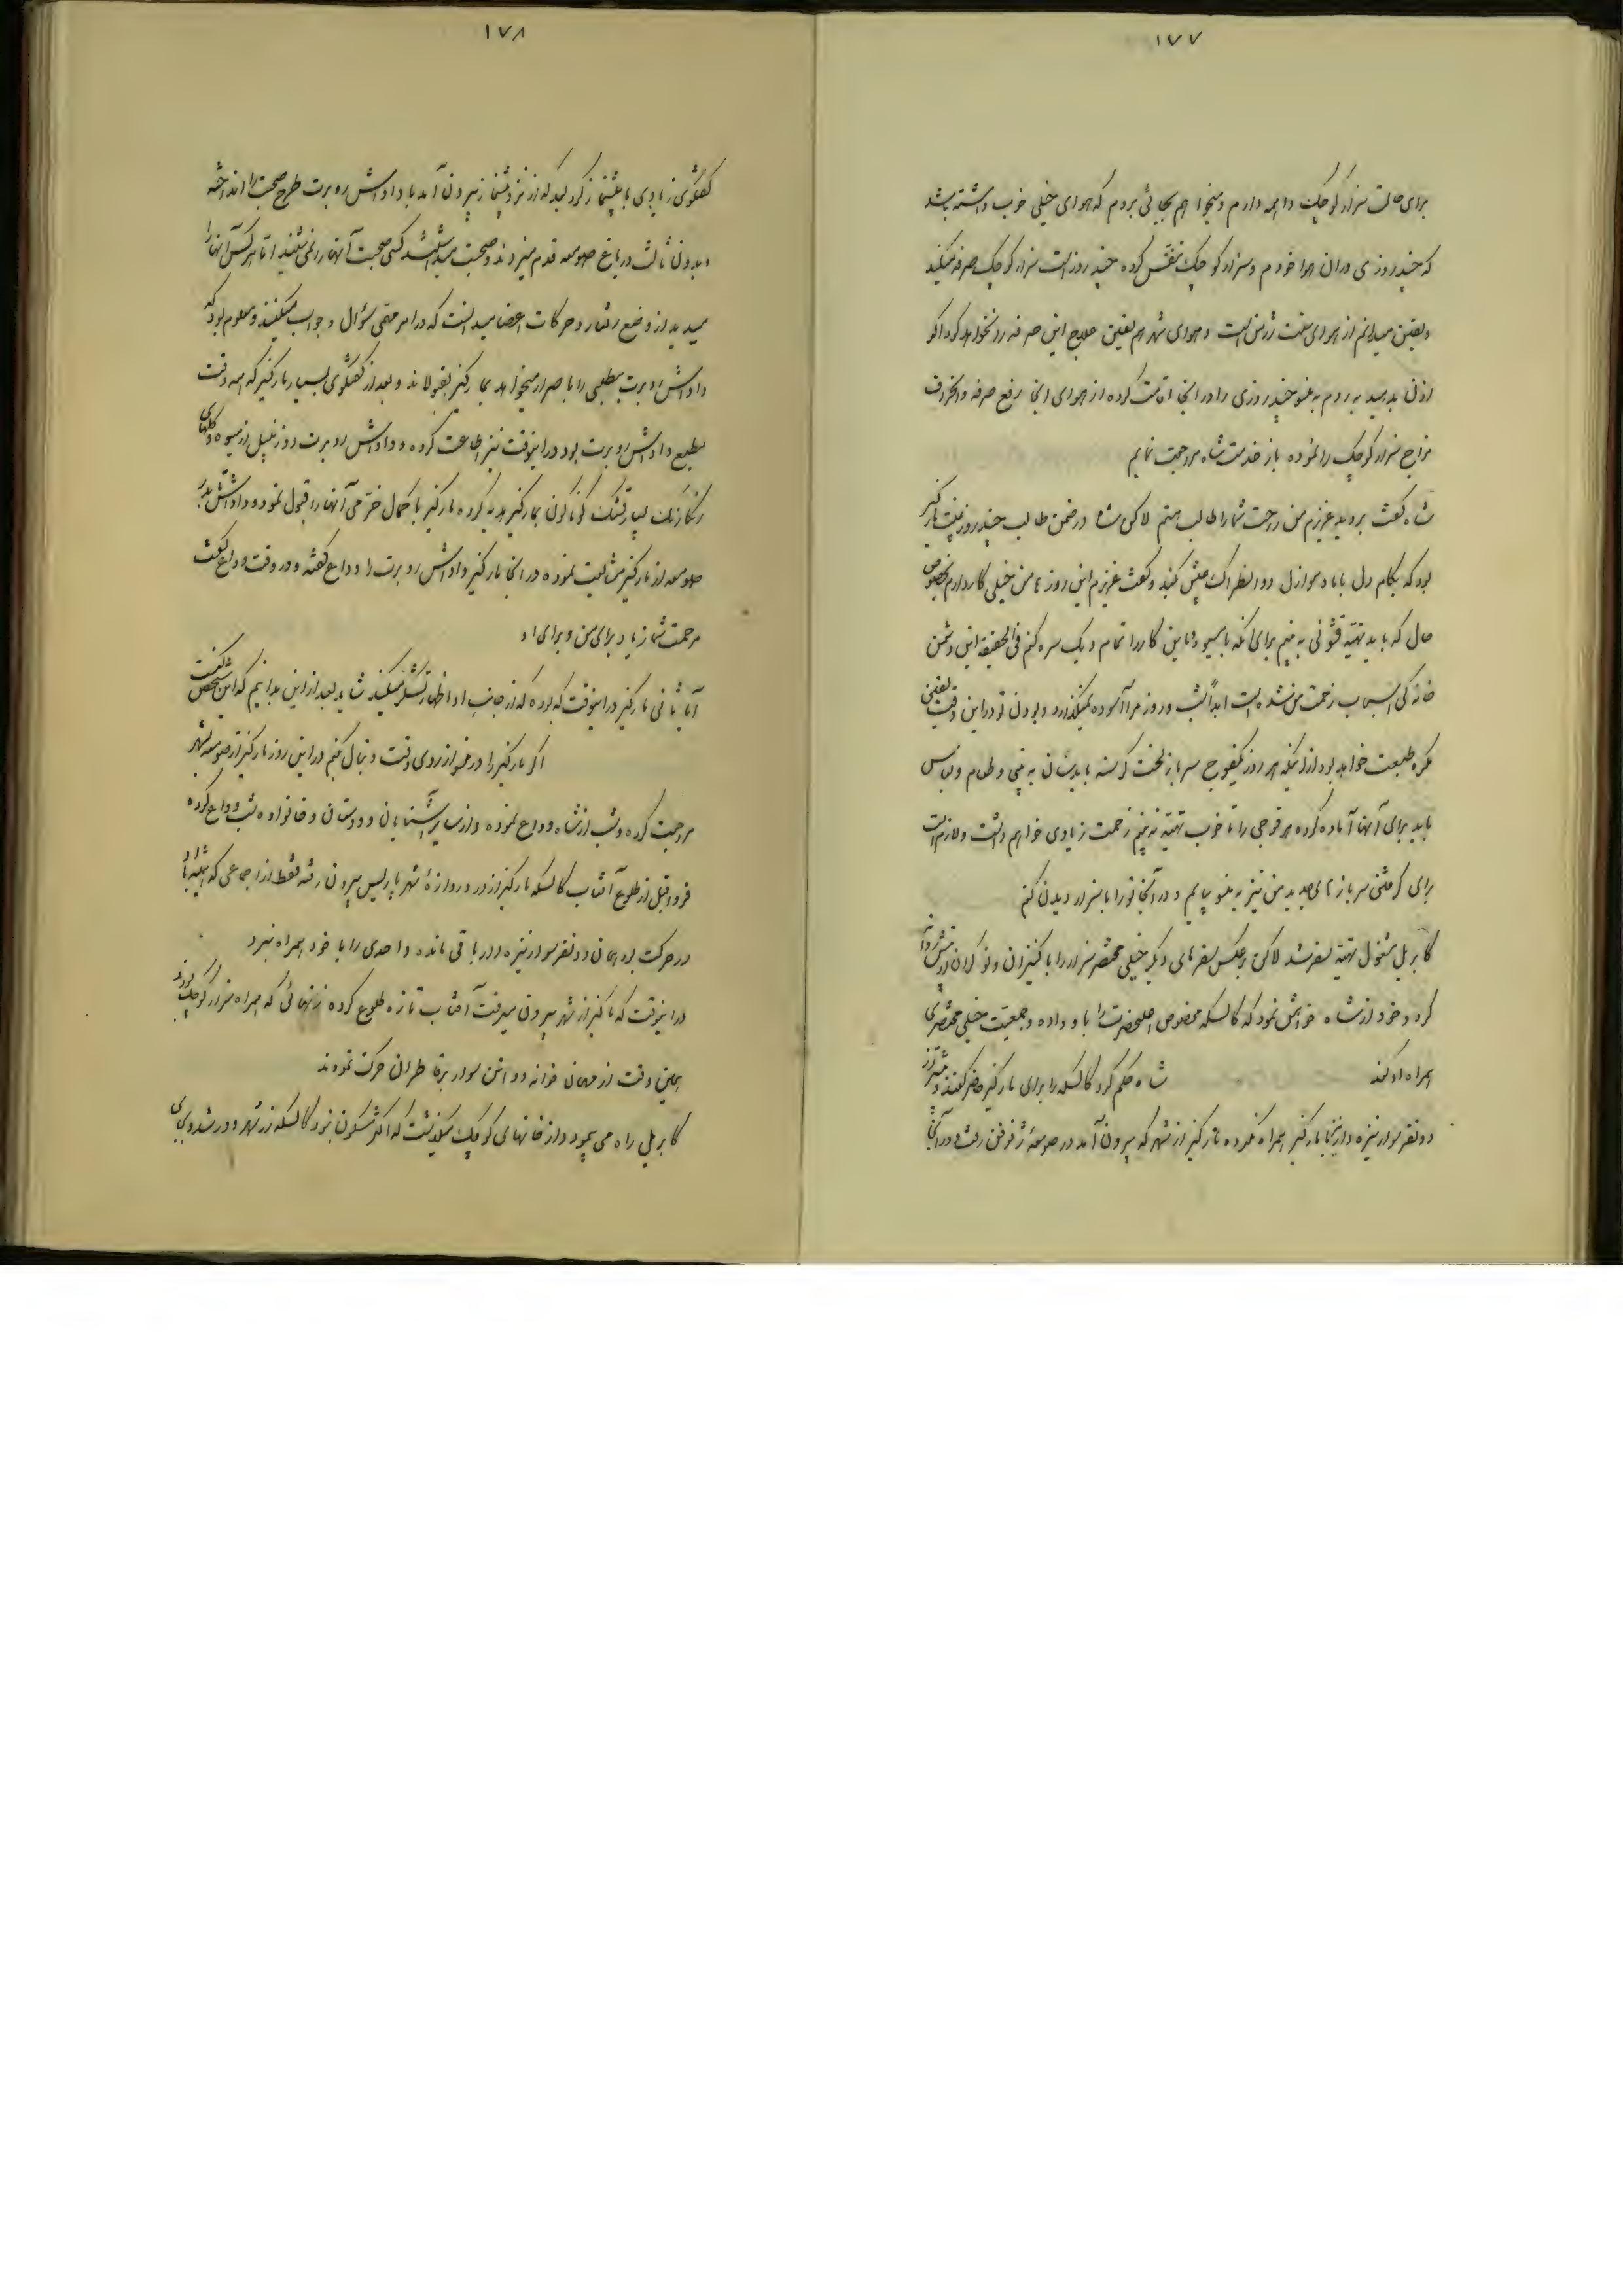 ۱۷۷
برای حالت سزار کوچک واهمه دارم و میخواهم بجائی بروم که هوای خیلی خوب داشته باشد
که چند روزی در ان هوا خودم و سزار کوچک تنفس کرده چند روز است سزار کوچک صرفه میکند
و یقین میدانم از هوای سخت ژرمن است و هوای شهر هم یقین علاج این صرفه را نخواهد کرد اگر
اذن بدهید بروم به بلنو چند روزی را در انجا اقامت کرده از هوای انجا رفع صرفه و انحراف
مزاج سزار کوچک را نموده باز خدمت شاه مراجعت نمایم
شاه گفت بروید عزیزم من راحت شما را طالب هستم لاکن شاه در ضمن طالب چند روز غیبت مارکیز
بود که بکام دل با مادموازل دو انطراک عیش کند و گفت عزیزم این روزها من خیلی کار دارم بخصوص
حال که باید تهیه قشونی به بینم برای انکه با مسیو دماین کار را تمام و یک سره کنم فی الحقیقه این دشمن
خانه کی اسباب زحمت من شده است ابداً شب و روز مرا آسوده نمیگذارد و بودن تو در این وقت یقین
مکره طبیعت خواهد بود از اینکه هر روز یکفوج سرباز لخت گرسنه باید سان به بینی و طعام و لباس
باید برای آنها آماده کرده هر فوجی را تا خوب تهیه به بینم زحمت زیادی خواهم داشت و لازم است
برای گرفتن سربازهای جدید من نیز به بلنو بیایم و در آنجا تو را با سزار دیدن کنم
گابریل مشغول تهیه سفر شد لاکن برعکس سفرهای دیگر خیلی مختصر سزار را با کنیزان و نوکران از پیش روانه
کرد و خود از شاه خواهش نمود که کالسکه مخصوص اعلیحضرت را باو داده و جمعیت خیلی مختصری
همراه او کند شاه حکم کرد کالسکه را برای مارکیز حاضر کنند و بیشتر از
دو نفر سوار نیزه دار با مارکیز همراه نکرده مارکیز از شهر که بیرون آمد در صومعهٔ ژنوفن رفت و در آنجا
۱۷۸
گفتگوی زیادی با پیشنماز کرد بعد که از نزد پیشنماز بیرون آمد با داداش روبرت طرح صحبت را انداخته
و بدون ثالث در باغ صومعه قدم میزدند و صحبت میداشتند کسی صحبت آنها را نمی شنید اما هر کس آنها را
میدید از وضع رفتار و حرکات اعضا میدانست که در امر مهمی سؤال و جواب میکنند و معلوم بود که
داداش روبرت مطلبی را با اصرار میخواهد بمارکیز بقبولاند و بعد از گفتگوی بسیار مارکیز که همه وقت
مطیع داداش روبرت بود در اینوقت نیز اطاعت کرده و داداش روبرت دو زنبیل از میوه و گلهای
رنگارنگ بسیار قشنگ گوناگون بمارکیز هدیه کرده مارکیز با کمال خرمی آنها را قبول نمود و داداش تا بدر
صومعه از مارکیز مشایعت نموده در انجا مارکیز داداش روبرت را وداع گفته و در وقت وداع گفت
مرحمت شما زیاد برای من و برای او
آیا ثانی مارکیز در اینوقت که بوده که از جانب او اظهار تشکر میکند شاید بعد از این بدانیم که این شخص کیست
اگر مارکیز را در سفر از روی دقت دنبال کنیم در این روز مارکیز از صومعه بشهر
مراجعت کرده و شب از شاه وداع نموده و از سایر آشنایان و دوستان و خانواده شب وداع کرده
فردا قبل از طلوع آفتاب کالسکه مارکیز از در دروازهٔ شهر پاریس بیرون رفته فقط از اجماعی که همیشه با او
در حرکت بود همان دو نفر سوار نیزه دار باقی مانده و احدی را با خود همراه نبرد
در اینوقت که مارکیز از شهر بیرون میرفت آفتاب تازه طلوع کرده زنهائی که همراه سزار کوچک بودند
بهمین وقت از مهمان خوانه دو اسن سوار بر قاطران حرکت نمودند
گابریل راه می پیمود و از خانهای کوچک میگذشت که اکثر مسکون نبود کالسکه از شهر دور شد و برای